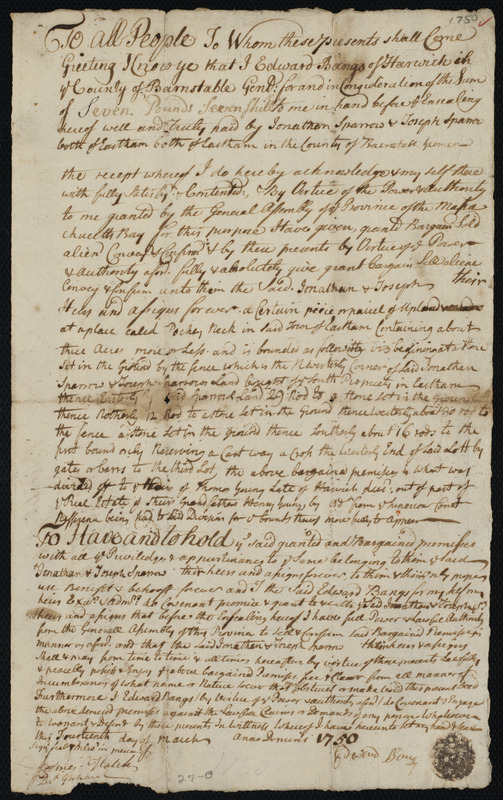 1750
To All People To Whom these presents shall Come
Greeting Know ye that I Edward Bangs of Harwich in
ye County of Barnstable Gentn: for and in Consideration of the Sum
of Seven Pounds Seven Shills to me in hand before ye Ensealing
hereof well and Truly paid by Jonathan Sparrow & Joseph Sparrow
both of Eastham both of Eastham in the County of Barnstable
the receipt whereof I do hereby acknowledge & my self there
with fully Satisfyd & Contented, By Virtue of the Power & authority
to me granted by the General Assembly of ye Province of the Massa
chusetts Bay for this purpose Have given, granted Bargaind Sold
aliend Conveyd & Confirmd & by these presents by Virtue of ye Power
& Authority aforsd fully & absolutely give grant bargain Sell aliene
Convey & Confirm unto them the Said Jonathan & Joseph their
Heirs and assigns forever a Certain piece or parcel of Upland
at a place Caled Pochey Neck in Said Town of Eastham Containing about
three Acres more or Less and is bounded as followeth viz begining at a stone
Set in the Ground by the fence which is the Westerly Corner of Said Jonathan
Sparrow & Joseph Sparrows Land bought of ye South Propriety in Eastham
thence Easterly by Said Sparrows Land 29 Rod to a stone Set in the Ground
thence Northerly 12 Rod to a stone Set in the Ground thence westerly about 30 rod to
the fence a stone Set in the ground thence Southerly about 16 rods to the
first bound only Reserving a Cart way across the westerly End of Said Lott by
gate or barrs to the third Lot, the above bargaind premises is what was
divided off to ye Heirs of Thomas Young Late of Harwich decd: out of part of
ye Real Estate of their Grand father Henry Young by ordr from ye Superior Court
Reference being had to said Division for ye bounds thereof more fully to Appear
To Have and to hold ye said granted and Bargained premises
with all ye Priviledges & appurtenances to ye Same belonging to them ye said
Jonathan & Joseph Sparrow their heirs and assigns forever, to them & their only proper
use Benefit & behooff forever and I the Said Edward Bangs for my self my
heirs Exrs & Admrs do Covenant promise & grant to & with ye Said Jonathan & Joseph
heirs and assigns that before the Ensealing hereof I have full Power & Lawful Authority
from the Generall Assembly of this Province to Sell & Confirm said Bargaind Premises in
manner as aforsd. and that the said Jonathan & Joseph Sparrow their heirs & assigns
Shall & may from time to time & at all times hereafter by virtue of these presents Lawfully
& peaceably posess & Enjoy ye above bargaind Premises free & Clear from all manner of
Incumbrances of what name or Nature soever that
Furthermore I Edward Bangs by Virtue of ye Power & authority aforsd do Covenant & Engage
the above demised premises against the Lawfull Claims or Demands of any person whatsoever
to warrant & Defend by these presents In witness whereof I have hereunto set my hand & Seal
this Fourteenth day of March Anno Domini 1750
Signd Seald & delivrd in presence of
Edward Bangs
27-0